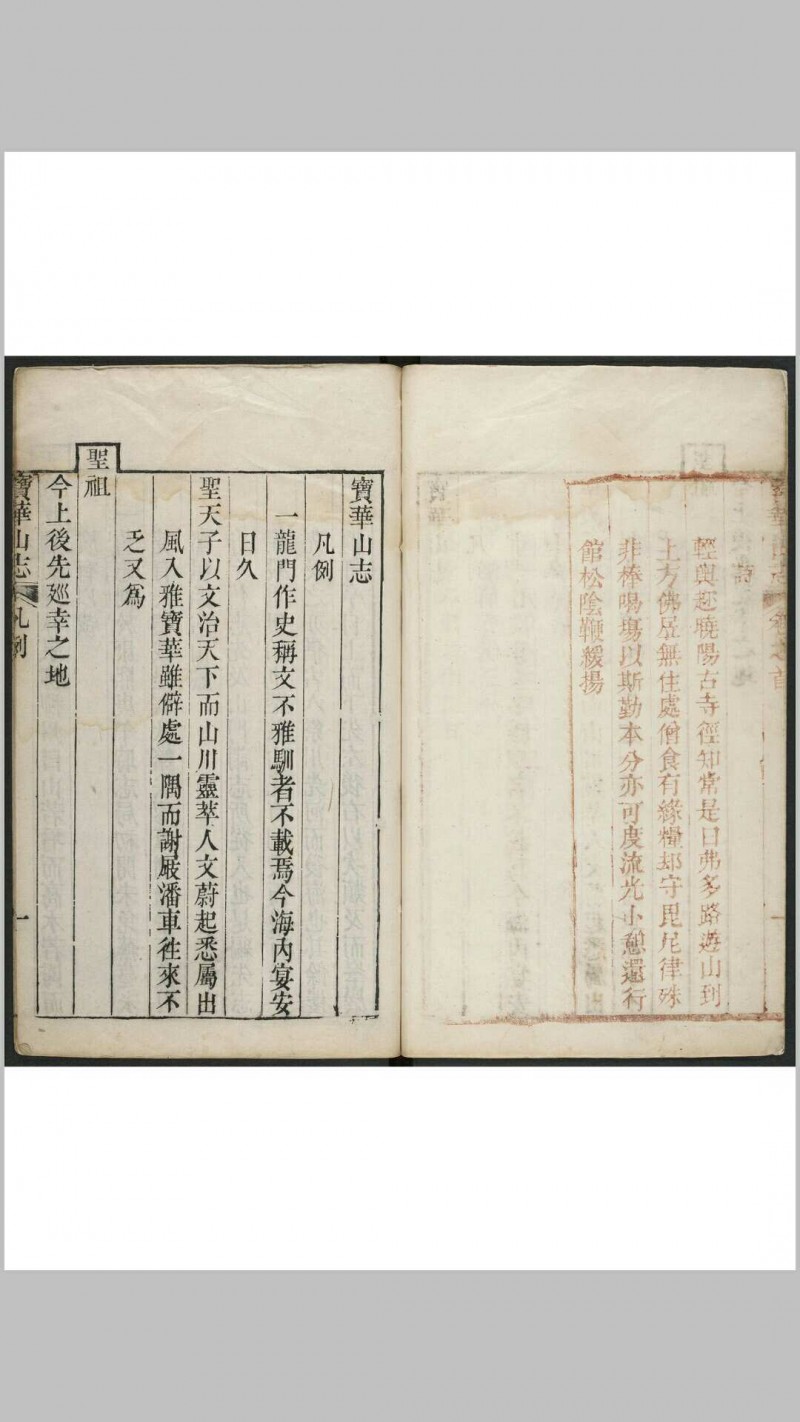 詩
輕輿趂曉陽古寺徑知常是日弗多路遊山到
上方佛居無住處僧食有緣糧却守毘尼律殊
非棒喝塲以斯勤本分亦可度流光小憩還行
館松陰鞭緩揚
寶華山志
凡例
一龍門作史稱文不雅馴者不載焉今海內宴安
日久
聖天子以文治天下而山川靈萃人文蔚起悉屬出
風入雅寶華雖僻處一隅而謝屐潘車徃來不
乏又爲
聖祖
今上後先廵幸之地
寶華山志 凡例 一